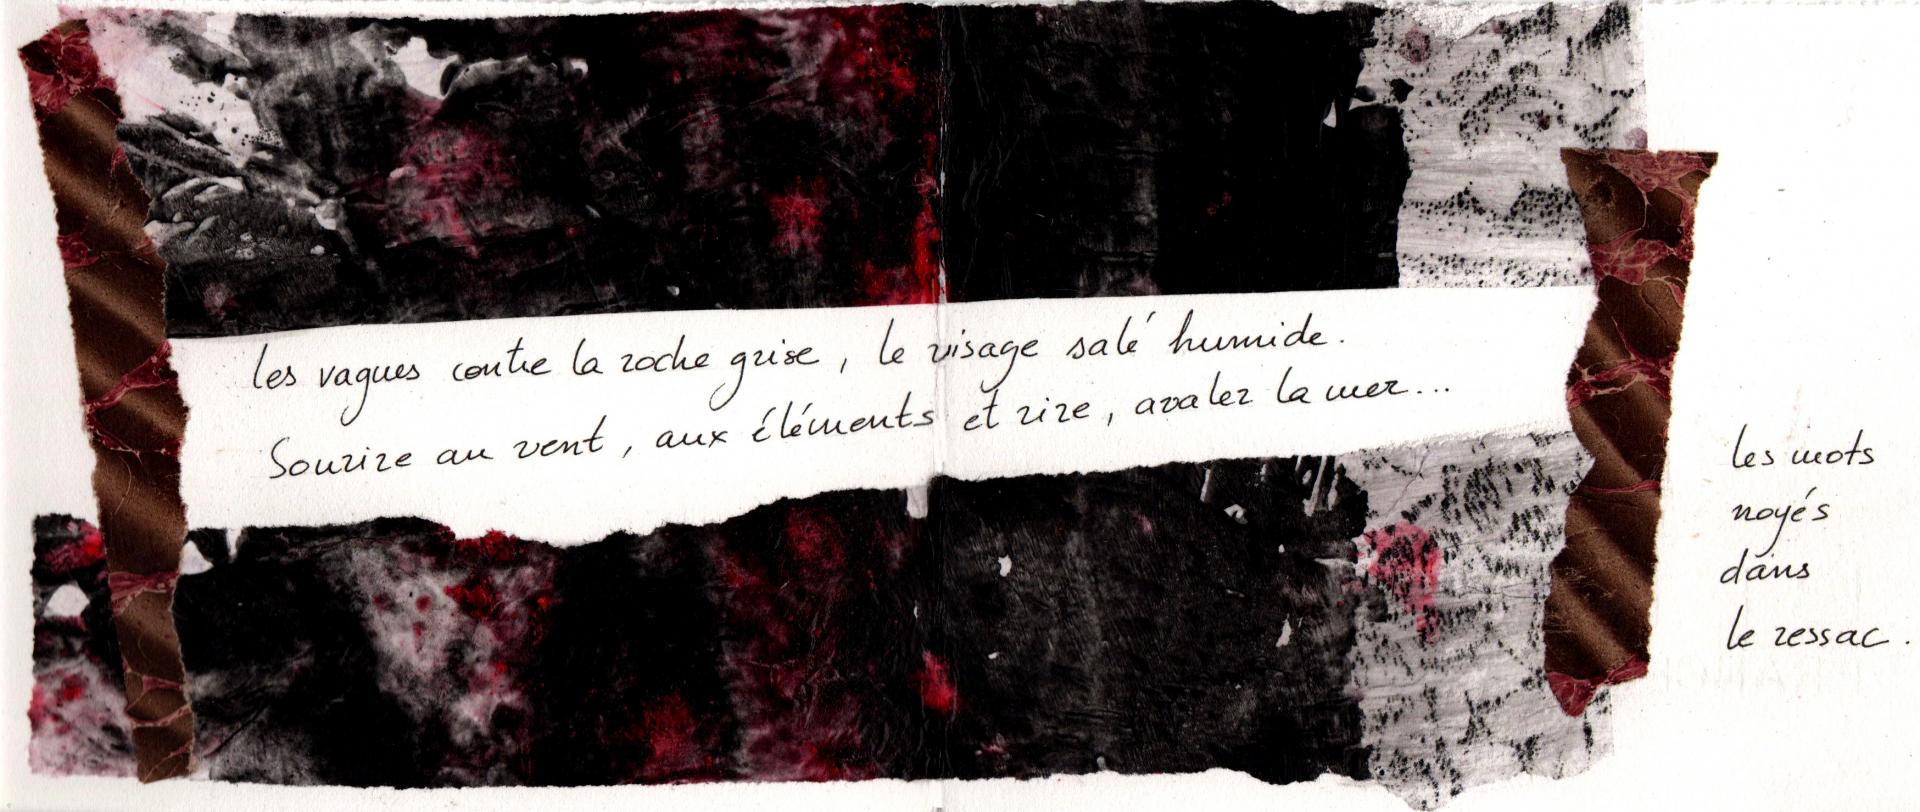 les vagues contre la roche grise, le visage salé humide.
Sourire au vent, aux éléments et rire, avaler la mer...
les mots
noyés
dans
le ressac.